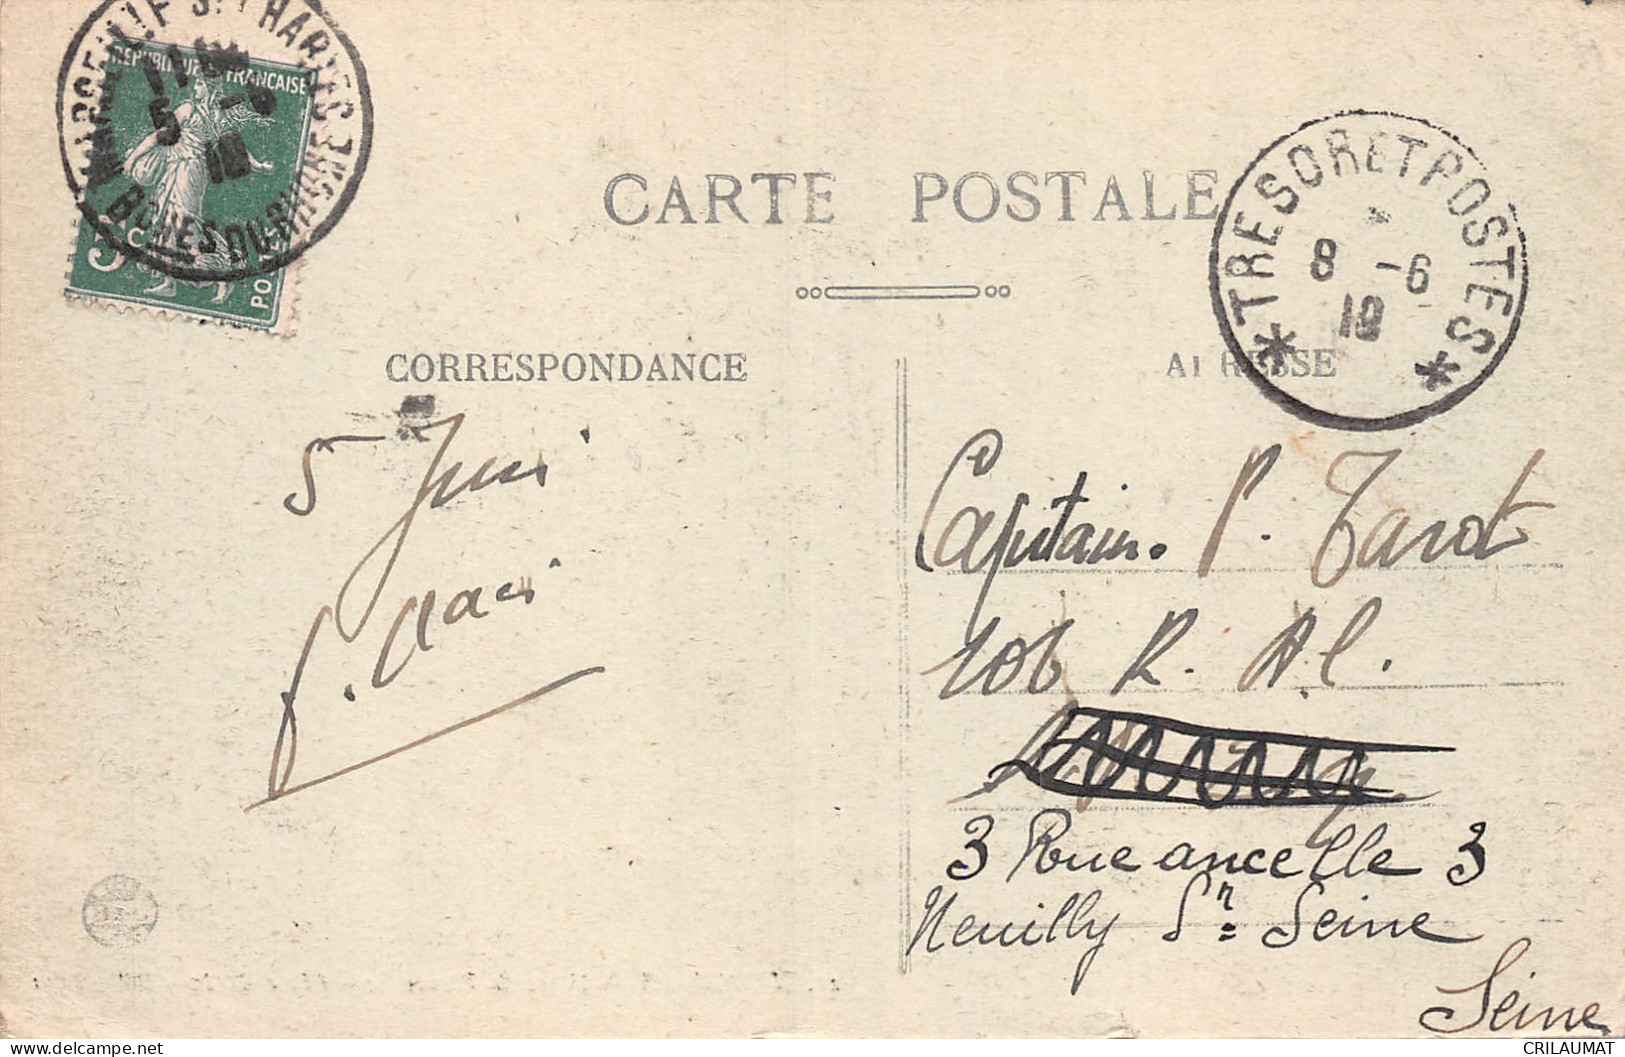 MARSEILLE St CHARLES GARE
11
5 -6
BCHES DU RHONE
REPUBLIQUE FRANÇAISE
5 C
POSTES
CARTE POSTALE
*TRESOR ET POSTES*
8 -6
19
CORRESPONDANCE
ADRESSE
5 Juin
Capitaine P. Tarot
106 R. A. L.
3 Rue ancelle 3
Neuilly Sr= Seine
Seine
CRILAUMAT